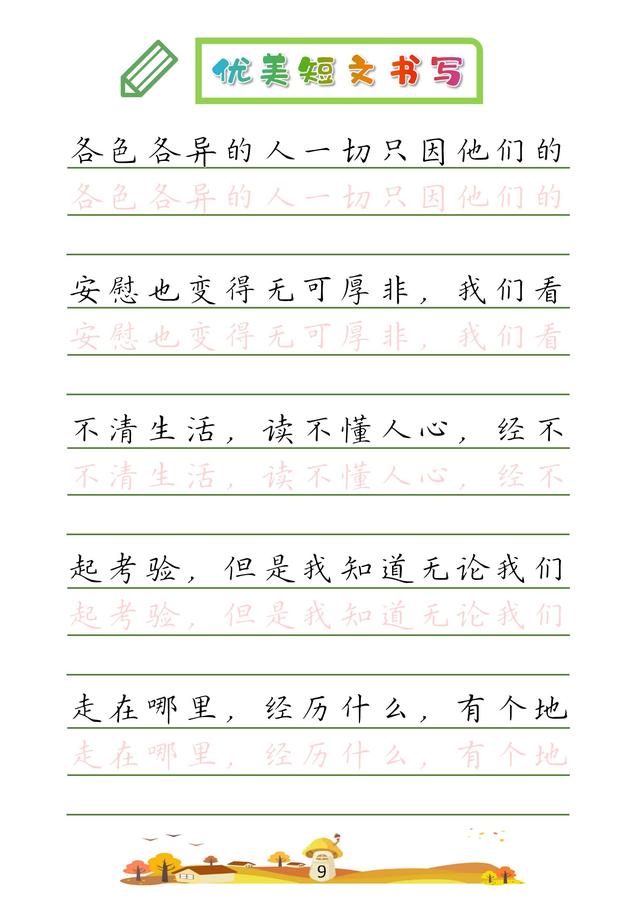 优美短文书写
各色各异的人一切只因他们的
各色各异的人一切只因他们的
安慰也变得无可厚非，我们看
安慰也变得无可厚非，我们看
不清生活，读不懂人心，经不
不清生活，读不懂人心，经不
起考验，但是我知道无论我们
起考验，但是我知道无论我们
走在哪里，经历什么，有个地
走在哪里，经历什么，有个地
9